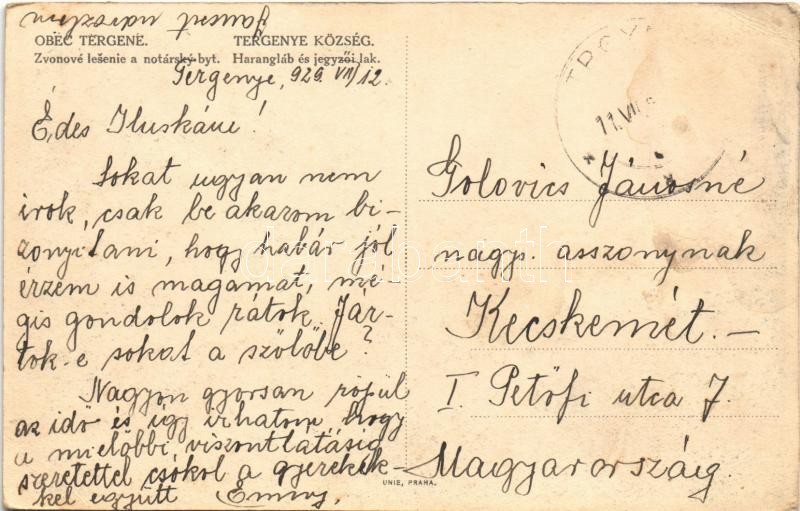 OBEC TERGENE. TERGENYE KÖZSÉG.
Zvonové lešenie a notársky byt. Harangláb és jegyzői lak.
Tergenye, 929. VII/12.
Édes Iluskáne!
Sokat ugyan nem
irok, csak be akarom bi-
zonyitani, hogy habár jól
érzem is magamat, mé-
gis gondolok rátok. Jár-
tok-e sokat a szőlőbe?
Nagyon gyorsan röpül
az idő és igy irhatom, hogy
a mielőbbi viszontlatásig
szeretettel csókol a gyerekek-
kel együtt Emmy.
11. VII
Golovics Jánosné
nagys. asszonynak
Kecskemét. —
I Petőfi utca 7.
Magyarország.
UNIE, PRAHA.
darabanth